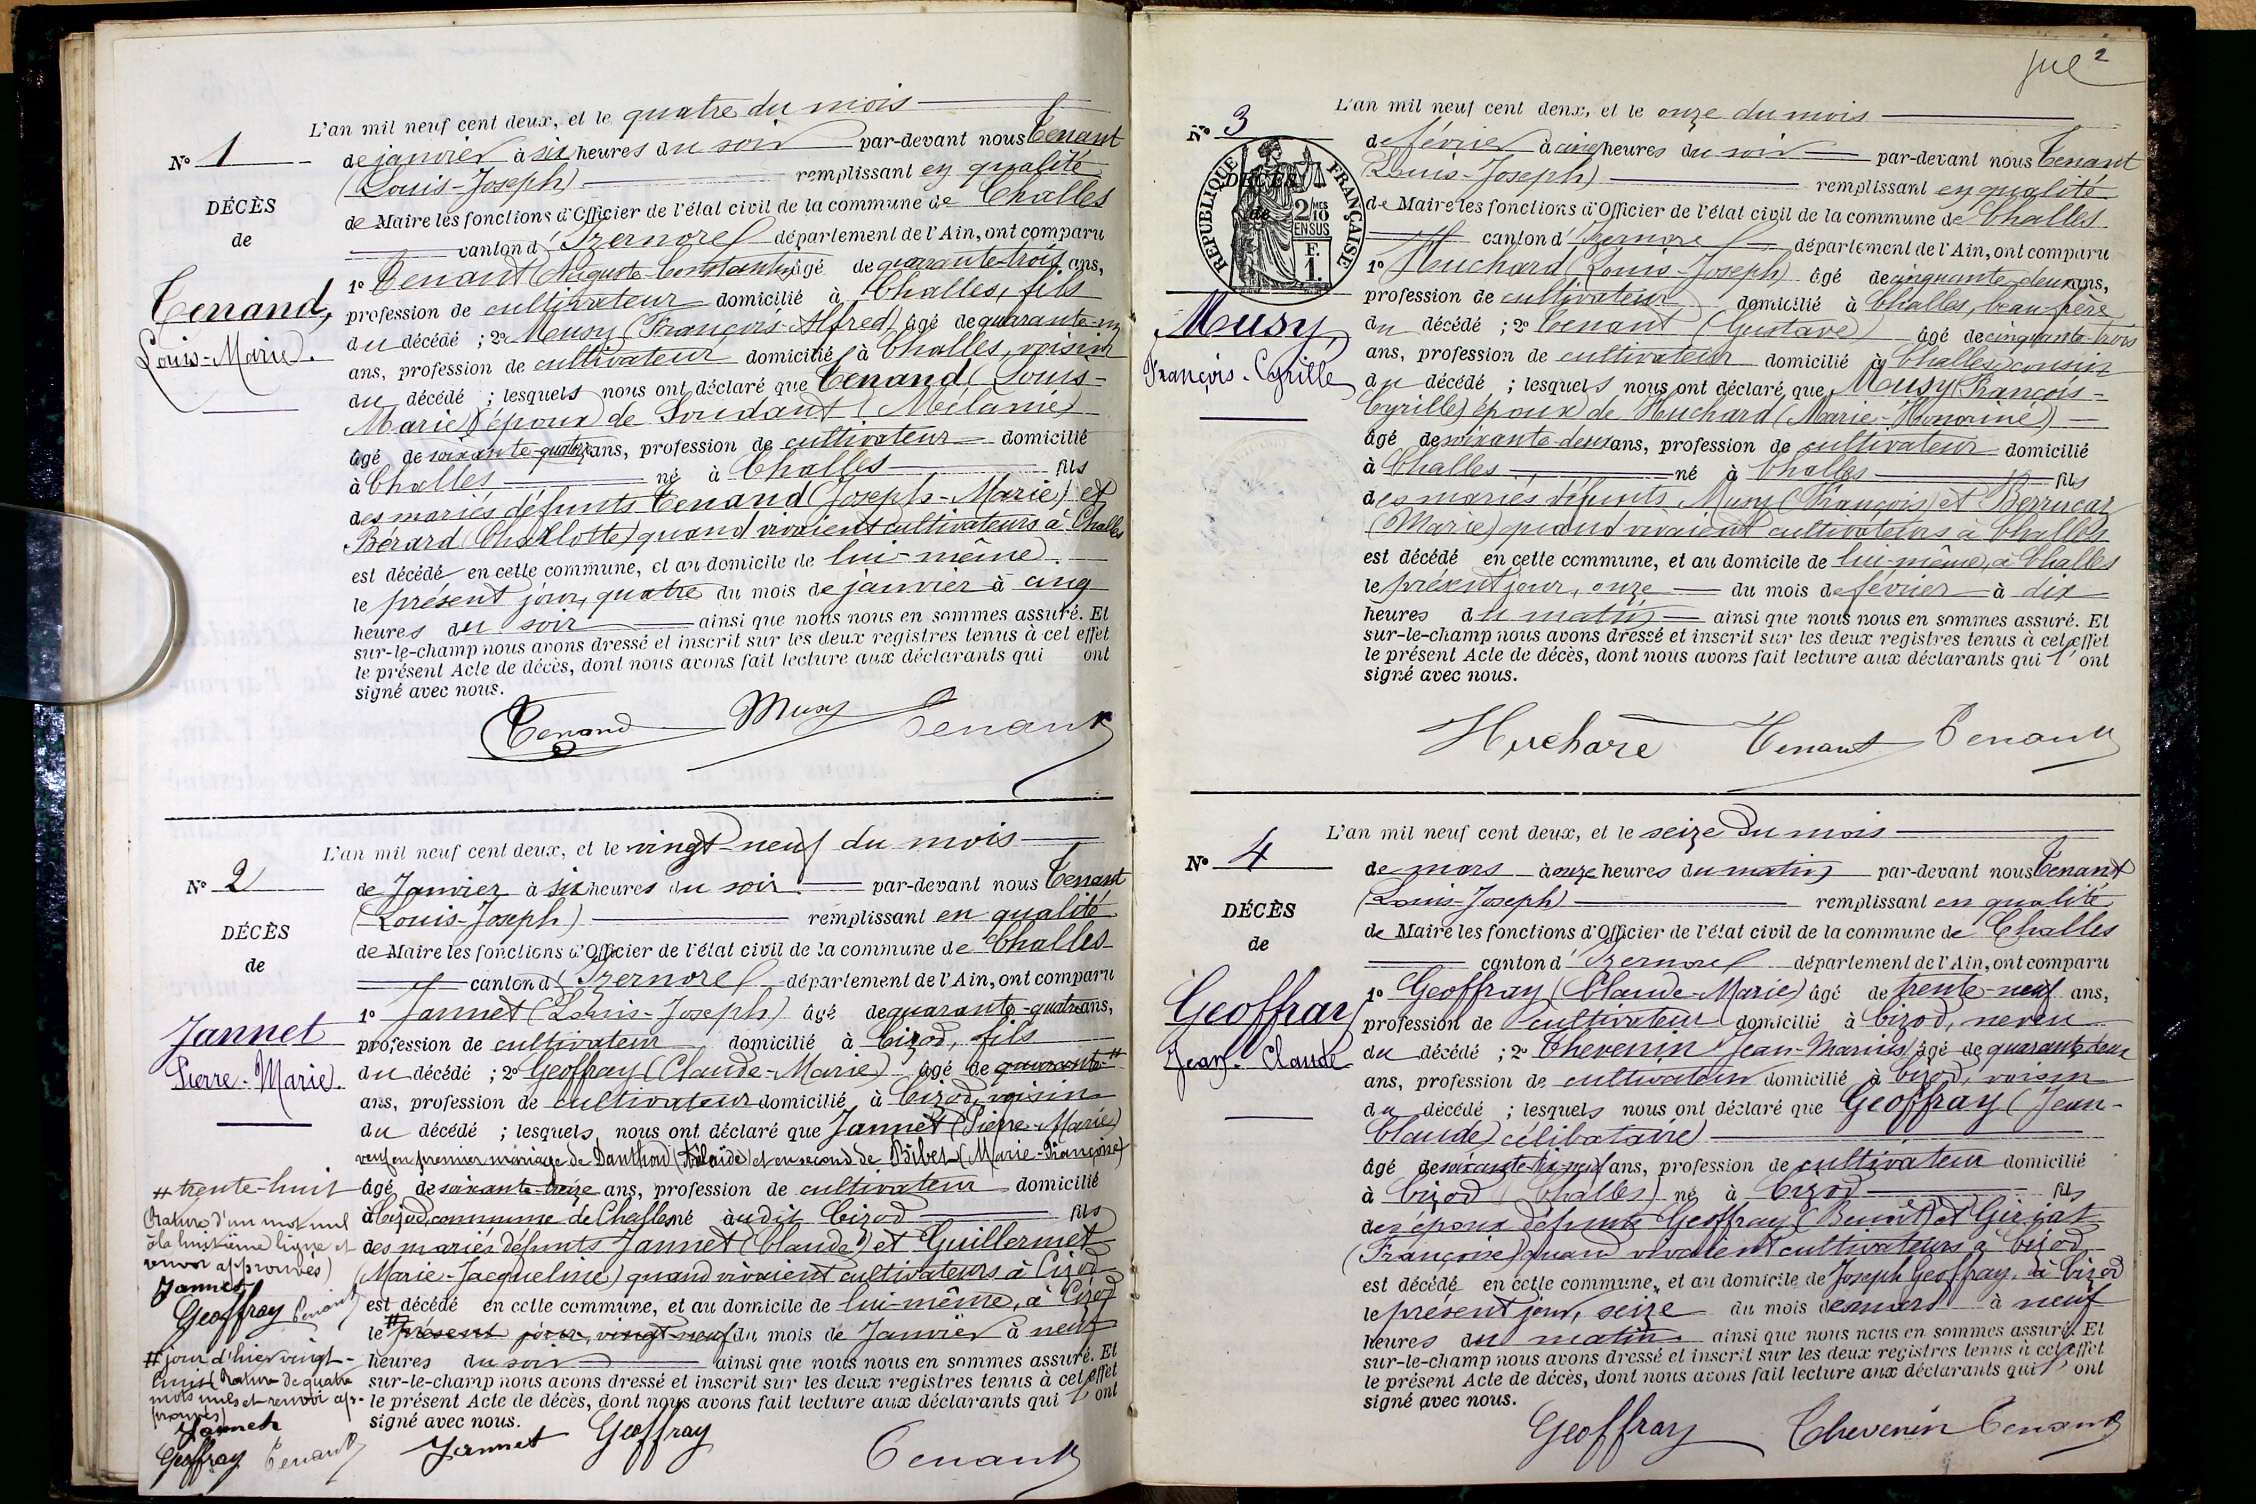 L'an mil neuf cent deux, et le quatre du mois
N° 1
de janvier à six heures du soir par-devant nous Tenant
(Louis-Joseph) remplissant en qualité
DÉCÈS
de Maire les fonctions d'Officier de l'état civil de la commune de Challes
de
canton d'Izernore département de l'Ain, ont comparu
1° Tenant (Auguste-Constant) âgé de quarante-trois ans,
Tenand,
profession de cultivateur domicilié à Challes, fils
Louis-Marie.
du décédé ; 2° Musy (François-Alfred) âgé de quarante-un
ans, profession de cultivateur domicilié à Challes, voisin
du décédé ; lesquels nous ont déclaré que Tenand (Louis-
Marie) époux de Soudant (Mélanie)
âgé de soixante-quatorze ans, profession de cultivateur domicilié
à Challes né à Challes fils
des mariés défunts Tenand (Joseph-Marie) et
Bérard (Charlotte) quand vivaient cultivateurs à Challes
est décédé en cette commune, et au domicile de lui-même
le présent jour, quatre du mois de janvier à cinq
heures du soir ainsi que nous nous en sommes assuré. Et
sur-le-champ nous avons dressé et inscrit sur les deux registres tenus à cet effet
le présent Acte de décès, dont nous avons fait lecture aux déclarants qui ont
signé avec nous.
Tenand Musy Tenant
L'an mil neuf cent deux, et le vingt-neuf du mois
N° 2
de Janvier à six heures du soir par-devant nous Tenant
(Louis-Joseph) remplissant en qualité
DÉCÈS
de Maire les fonctions d'Officier de l'état civil de la commune de Challes
de
canton d'Izernore département de l'Ain, ont comparu
1° Jannet (Louis-Joseph) âgé de quarante-quatre ans,
Jannet
profession de cultivateur domicilié à Cizod, fils
Pierre-Marie.
du décédé ; 2° Geoffray (Claude-Marie) âgé de quarante #
ans, profession de cultivateur domicilié à Cizod, voisin
du décédé ; lesquels nous ont déclaré que Jannet (Pierre-Marie)
veuf en premier mariage de Danthon (Adelaïde) et en second de Bibet (Marie-Françoise)
âgé de soixante-treize ans, profession de cultivateur domicilié
à Cizod, commune de Challes né audit Cizod fils
des mariés défunts Jannet (Claude) et Guillermet
(Marie-Jacqueline) quand vivaient cultivateurs à Cizod
est décédé en cette commune, et au domicile de lui-même, à Cizod
le # présent jour, vingt-neuf du mois de Janvier à neuf
heures du soir ainsi que nous nous en sommes assuré. Et
sur-le-champ nous avons dressé et inscrit sur les deux registres tenus à cet effet
le présent Acte de décès, dont nous avons fait lecture aux déclarants qui l'ont
signé avec nous.
Jannet Geoffray Tenant
# trente-huit
(Rature d'un mot nul
à la huitième ligne et
renvoi approuvés)
Jannet
Geoffray Tenant
# jour d'hier vingt-
huit (Rature de quatre
mots nuls et renvoi ap-
prouvés)
Jannet
Geoffray Tenant
2
L'an mil neuf cent deux, et le onze du mois
N° 3
de février à cinq heures du soir par-devant nous Tenant
(Louis-Joseph) remplissant en qualité
DÉCÈS
de
RÉPUBLIQUE FRANÇAISE
2 MES
10
EN SUS
F.
1.
de Maire les fonctions d'Officier de l'état civil de la commune de Challes
canton d'Izernore département de l'Ain, ont comparu
1° Huchard (Louis-Joseph) âgé de cinquante-deux ans,
profession de cultivateur domicilié à Challes, beau-frère
Musy,
François-Cyrille
du décédé ; 2° Tenant (Gustave) âgé de cinquante-trois
ans, profession de cultivateur domicilié à Challes, cousin
du décédé ; lesquels nous ont déclaré que Musy (François-
Cyrille) époux de Huchard (Marie-Honorine)
âgé de soixante-deux ans, profession de cultivateur domicilié
à Challes né à Challes fils
des mariés défunts Musy (François) et Berrucar
(Marie) quand vivaient cultivateurs à Challes
est décédé en cette commune, et au domicile de lui-même, à Challes
le présent jour, onze du mois de février à dix
heures du matin ainsi que nous nous en sommes assuré. Et
sur-le-champ nous avons dressé et inscrit sur les deux registres tenus à cet effet
le présent Acte de décès, dont nous avons fait lecture aux déclarants qui l'ont
signé avec nous.
Huchard Tenant Tenant
L'an mil neuf cent deux, et le seize du mois
N° 4
de mars à onze heures du matin par-devant nous Tenant
(Louis-Joseph) remplissant en qualité
DÉCÈS
de Maire les fonctions d'Officier de l'état civil de la commune de Challes
de
canton d'Izernore département de l'Ain, ont comparu
1° Geoffray (Claude-Marie) âgé de trente-neuf ans,
Geoffray
profession de cultivateur domicilié à Cizod, neveu
Jean-Claude
du décédé ; 2° Thevenin Jean-Marius) âgé de quarante-deux
ans, profession de cultivateur domicilié à Cizod, voisin
du décédé ; lesquels nous ont déclaré que Geoffray (Jean-
Claude) célibataire
âgé de soixante-dix-neuf ans, profession de cultivateur domicilié
à Cizod (Challes) né à Cizod fils
des époux défunts Geoffray (Benoît) et Girjat
(Françoise) quand vivaient cultivateurs à Cizod
est décédé en cette commune, et au domicile de Joseph Geoffray, à Cizod
le présent jour, seize du mois de mars à neuf
heures du matin ainsi que nous nous en sommes assuré. Et
sur-le-champ nous avons dressé et inscrit sur les deux registres tenus à cet effet
le présent Acte de décès, dont nous avons fait lecture aux déclarants qui l'ont
signé avec nous.
Geoffray Thevenin Tenant